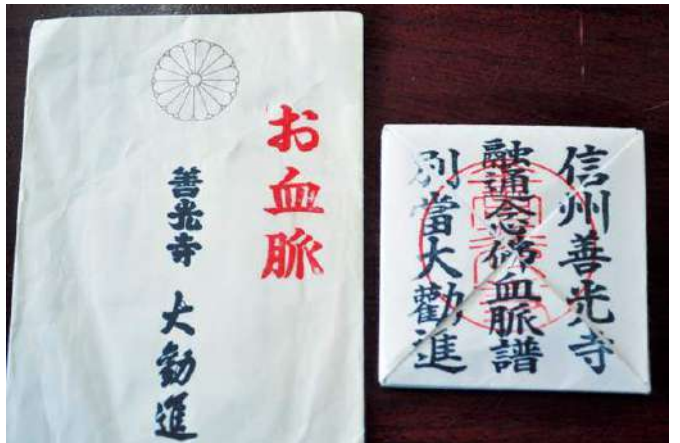 お血脈
善光寺 大勧進
信州善光寺
融通念佛血脈譜
別當大勸進